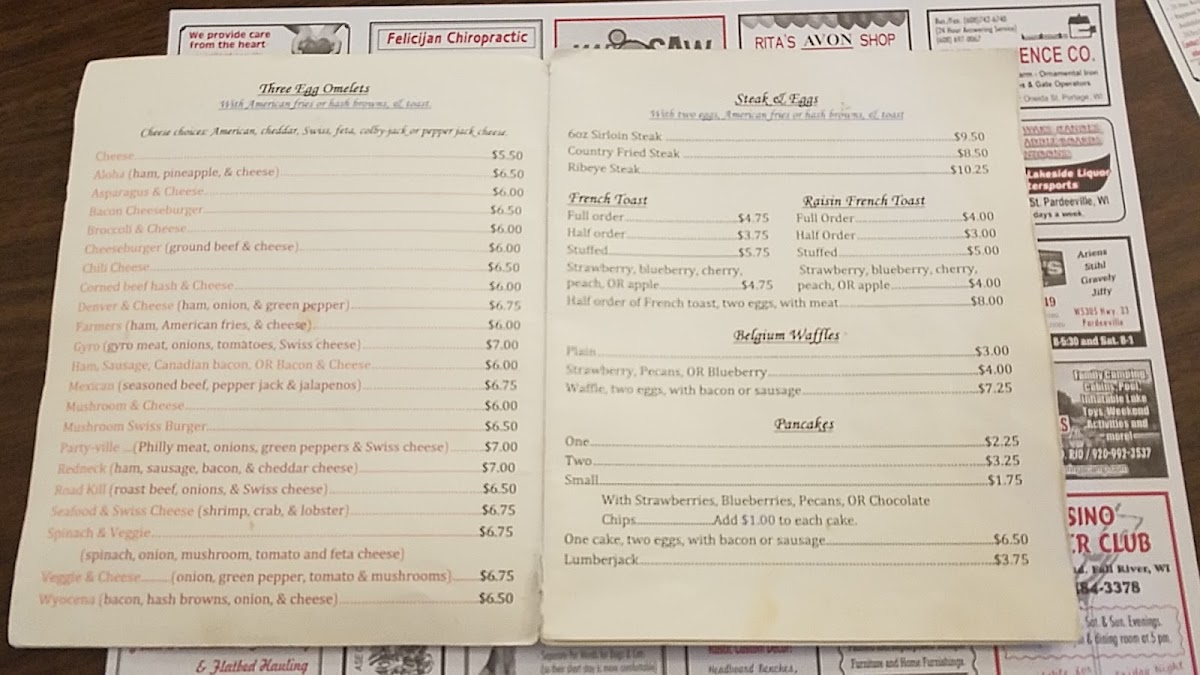 We provide care
from the heart
Felicijan Chiropractic
SAW
RITA'S AVON SHOP
Bus./Fax. (608) 742-6740
(24 Hour Answering Service)
(608) 697-0067
ENCE CO.
Ornamental Iron
& Gate Operators
Oneida St. Portage, WI
Three Egg Omelets
With American fries or hash browns, & toast.
Cheese choices: American, cheddar, Swiss, feta, colby-jack or pepper jack cheese.
Cheese $5.50
Aloha (ham, pineapple, & cheese) $6.50
Asparagus & Cheese $6.00
Bacon Cheeseburger $6.50
Broccoli & Cheese $6.00
Cheeseburger (ground beef & cheese) $6.00
Chili Cheese $6.50
Corned beef hash & Cheese $6.00
Denver & Cheese (ham, onion, & green pepper) $6.75
Farmers (ham, American fries, & cheese) $6.00
Gyro (gyro meat, onions, tomatoes, Swiss cheese) $7.00
Ham, Sausage, Canadian bacon, OR Bacon & Cheese $6.00
Mexican (seasoned beef, pepper jack & jalapenos) $6.75
Mushroom & Cheese $6.00
Mushroom Swiss Burger $6.50
Party-ville ...(Philly meat, onions, green peppers & Swiss cheese) $7.00
Redneck (ham, sausage, bacon, & cheddar cheese) $7.00
Road Kill (roast beef, onions, & Swiss cheese) $6.50
Seafood & Swiss Cheese (shrimp, crab, & lobster) $6.75
Spinach & Veggie $6.75
(spinach, onion, mushroom, tomato and feta cheese)
Veggie & Cheese (onion, green pepper, tomato & mushrooms) $6.75
Wyocena (bacon, hash browns, onion, & cheese) $6.50
Steak & Eggs
With two eggs, American fries or hash browns, & toast
6oz Sirloin Steak $9.50
Country Fried Steak $8.50
Ribeye Steak $10.25
French Toast
Full order $4.75
Half order $3.75
Stuffed $5.75
Strawberry, blueberry, cherry,
peach, OR apple $4.75
Raisin French Toast
Full Order $4.00
Half Order $3.00
Stuffed $5.00
Strawberry, blueberry, cherry,
peach, OR apple $4.00
Half order of French toast, two eggs, with meat $8.00
Belgium Waffles
Plain $3.00
Strawberry, Pecans, OR Blueberry $4.00
Waffle, two eggs, with bacon or sausage $7.25
Pancakes
One $2.25
Two $3.25
Small $1.75
With Strawberries, Blueberries, Pecans, OR Chocolate
Chips Add $1.00 to each cake.
One cake, two eggs, with bacon or sausage $6.50
Lumberjack $3.75
Lakeside Liquor
tersports
St. Pardeeville, WI
days a week
Ariens
Stihl
Gravely
Jiffy
W5305 Hwy. 33
Pardeeville
8-5:30 and Sat. 8-1
Family Camping,
Cabins, Pool,
Inflatable Lake
Toys, Weekend
Activities and
more!
RIO / 920-992-3537
SINO
R CLUB
Fall River, WI
84-3378
Sat. & Sun. Evenings.
& dining room at 5 pm.
Friday Night
& Flatbed Hauling
Headboard Benches,
Furniture and Home Furnishings.